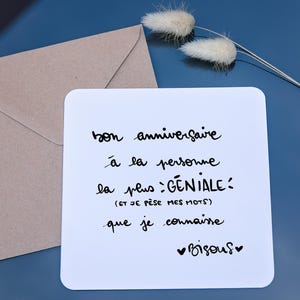 bon anniversaire
à la personne
la plus GÉNIALE
(ET JE PÈSE MES MOTS)
que je connaisse
♥Bisous♥